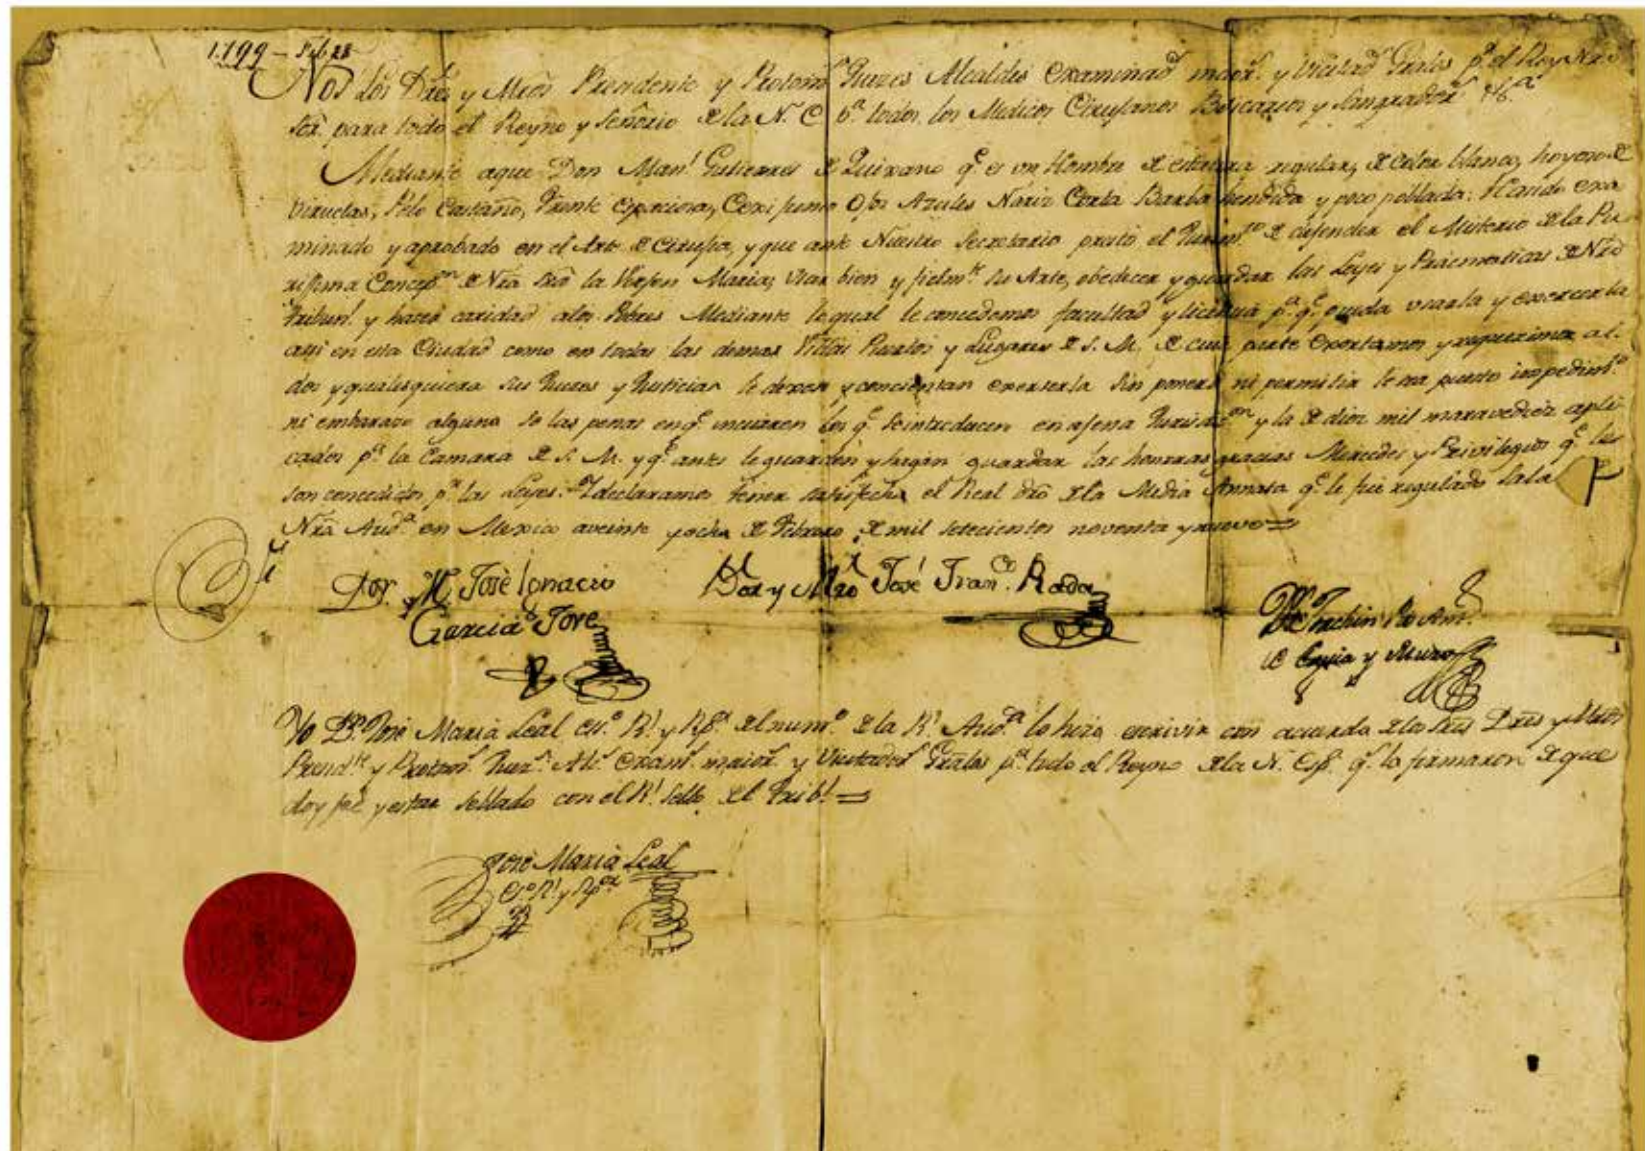 1799 - Feb 28
Nos los D.res y Mros Presidente y Protom.s Juezes Alcaldes Examinad.s maior.s y Visitad.s Grales p.r el Rey Nro
Sor. para todo el Reyno y Señorio de la N. E. de todos los Medicos Cirujanos Boticarios y Sangrador.s &.a
Mediante aque Don Man.l Gutierres de Quixano q.e es un Hombre de estatura regular, de color blanco, hoyoso de
Viruelas, Pelo Castaño, Frente Espaciosa, Ojos Azules Nariz Corta Barba hendida y poco poblada: Ha sido exa
minado y aprobado en el Arte de Cirujia, y que ante Nuestro Secretario prestó el Juram.to de defender el Misterio de la Pu
rissima Concep.on de Nra Sra la Virjen Maria, usar bien y fielm.te su Arte, obedecer y guardar las Leyes y Pracmaticas de Nro
Tribun.l y hacer caridad alos Pobres Mediante loqual le concedemos facultad y licencia p.a q.e pueda usarla y exercerla
assi en esta Ciudad como en todas las demas Villas Pueblos y Lugares de S. M. de cuia parte Exortamos y requerimos a to
dos y qualesquiera sus Juezes y Justicias le dexen y concientan exerserla Sin ponerle ni permitir le sea puesto impedim.to
ni embarazo alguno so las penas enq.e incurren los q.e seintroducen en ajena Jurisdic.on y la de diez mil maravediz apli
cados p.a la Camara de S. M. y q.e antes leguarden y hagan guardar las honrras gracias Mercedes y Privilegios q.e les
son concedidos p.r las Leyes. Y declaramos tener satisfecho el Real dro de la Media Annata q.e le fue regulado
Nra Aud.a en Mexico aveinte yocho de Febrero de mil setecientos noventa ynueve=
Dor. y M. José Ignacio
Garcia Jove
Dor y Mro José Fran.co Rada
D.r Joachin Pio Ant.o
de Eguia y Muro
Yo D.n José Maria Leal Es.no R.l y Rp.ca del num.o de la R.l Aud.a lo hize escrivir con acuerdo delos Sres D.res y Mros
Presid.te y Protom.s Juez.s Alc.s Exam.s maior.s y Visitador.s Grales p.a todo el Reyno dela N. Esp. q.e lo firmaron de que
doy feé y estar sellado con el R.l Sello del Trib.l=
José Maria Leal
Es.no R.l y Rp.ca